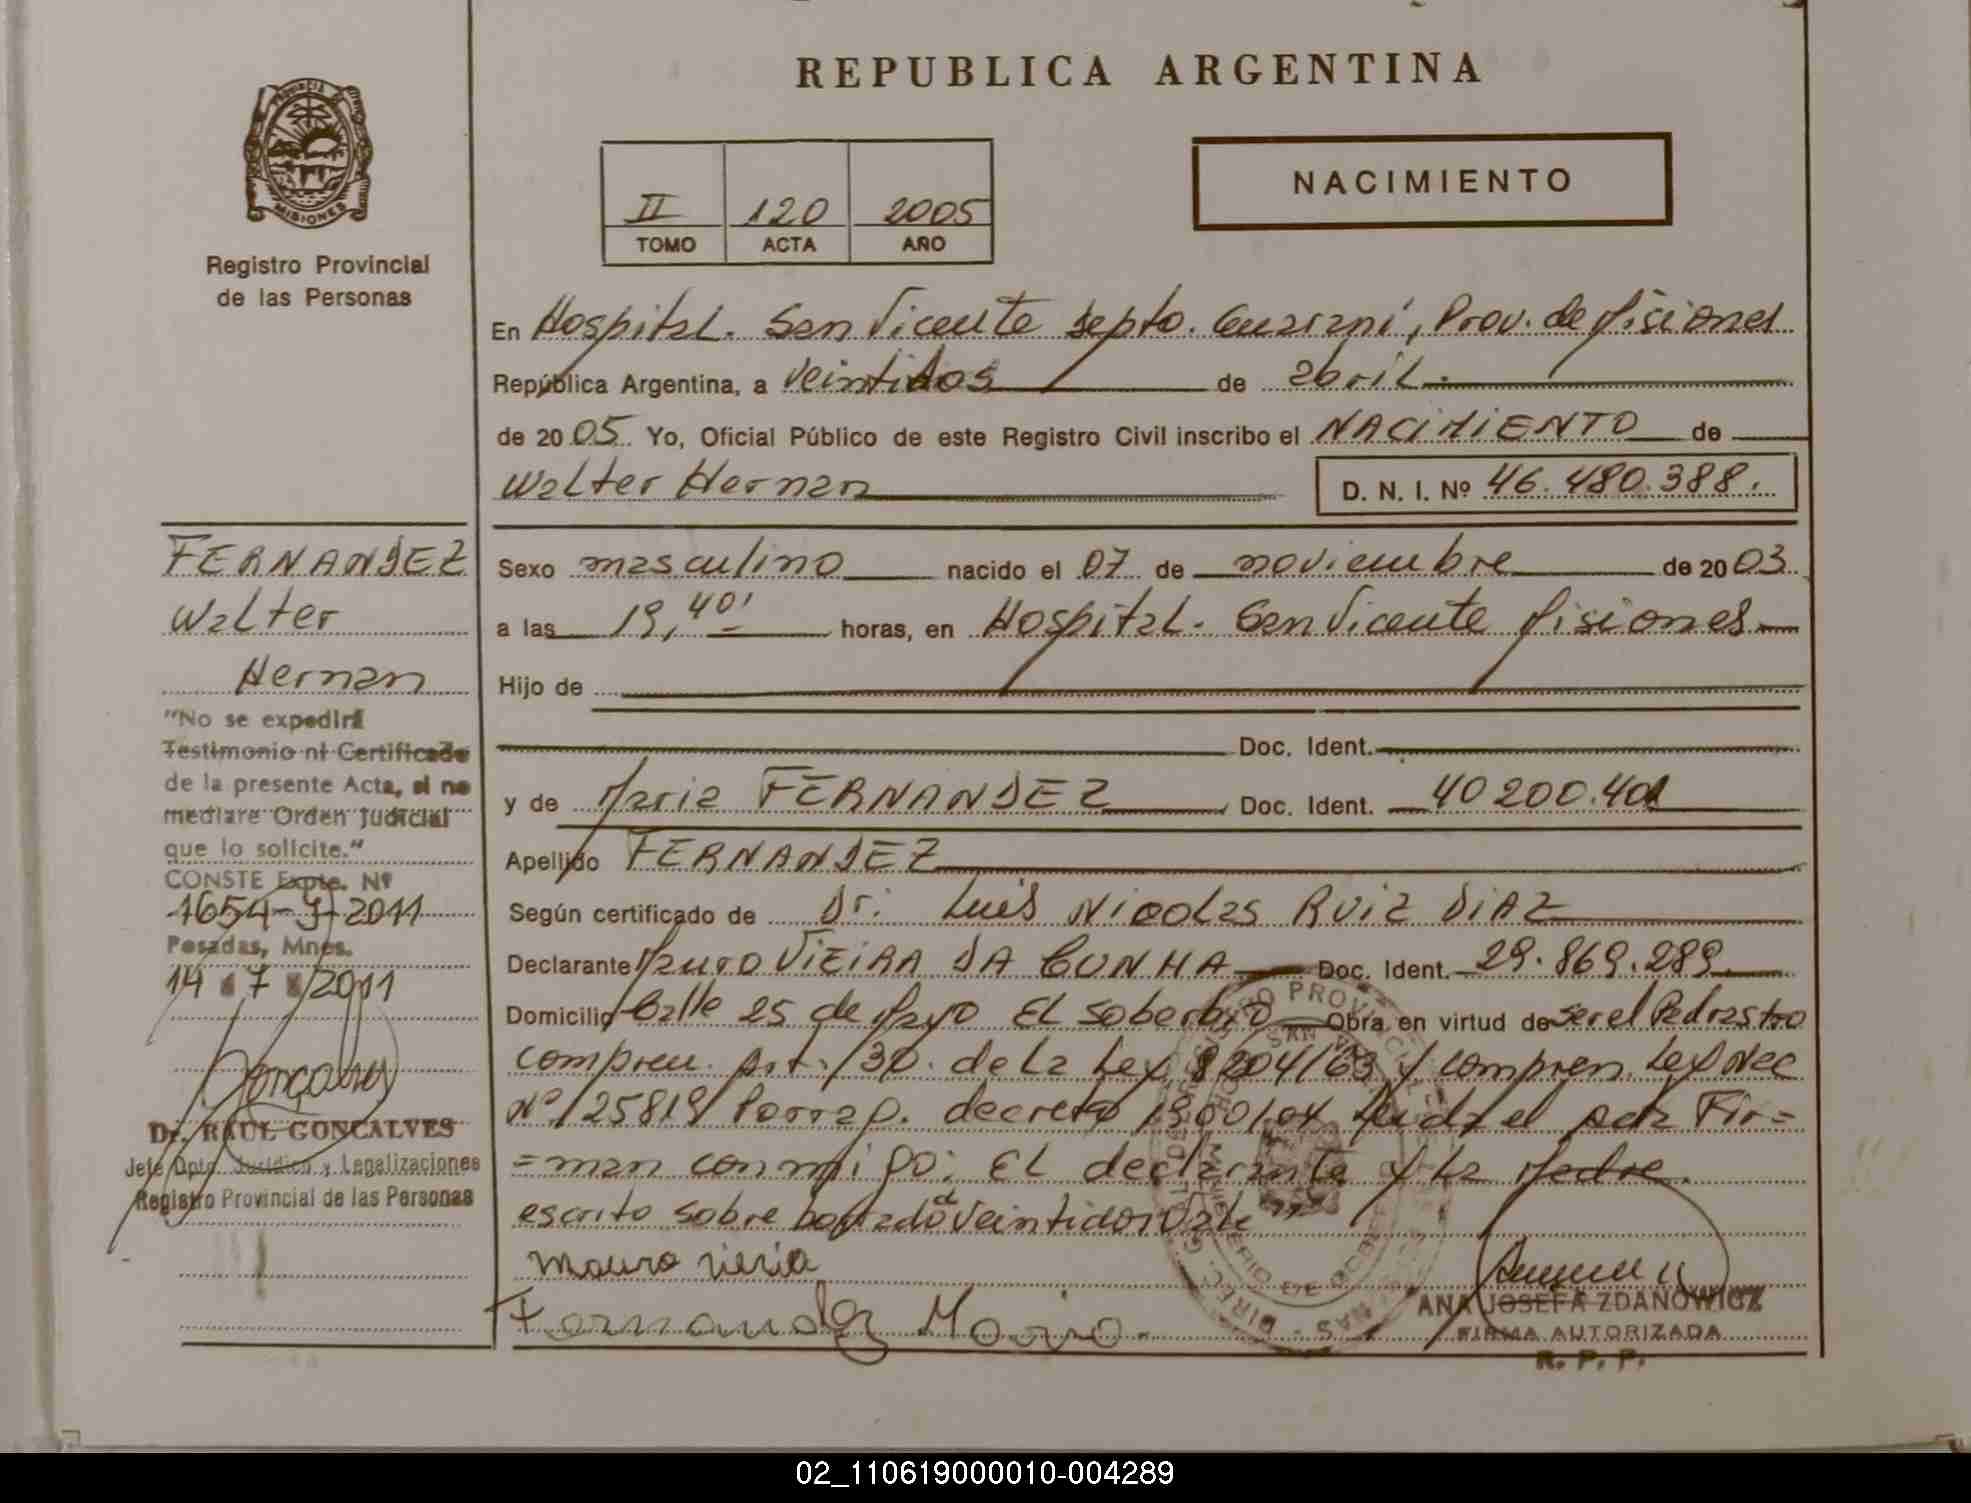 REPUBLICA ARGENTINA
PROVINCIA DE
MISIONES
Registro Provincial
de las Personas
NACIMIENTO
II 120 2005
TOMO ACTA AÑO
En Hospital. San Vicente Depto. Guarani, Prov. de Misiones
República Argentina, a veintidos de abril.
de 2005 Yo, Oficial Público de este Registro Civil inscribo el NACIMIENTO de
Walter Hernan D. N. I. Nº 46.480.388.
FERNANDEZ
Walter
Hernan
"No se expedirá
Testimonio ni Certificado
de la presente Acta, si no
mediare Orden Judicial
que lo solicite."
CONSTE Expte. Nº
1654-J-2011
Posadas, Mnes.
14 7 2011
Gonçalves
Dr. RAUL GONCALVES
Jefe Dpto. Jurídico y Legalizaciones
Registro Provincial de las Personas
Sexo masculino nacido el 07 de noviembre de 2003
a las 19,40' horas, en Hospital. San Vicente Misiones
Hijo de
Doc. Ident.
y de Maria FERNANDEZ Doc. Ident. 40200.401
Apellido FERNANDEZ
Según certificado de Dr. Luis Nicolas Ruiz Diaz
Declarante Mauro VIEIRA DA CUNHA Doc. Ident. 29.869.289
Domicilio Calle 25 de Mayo El Soberbio Obra en virtud de ser el Padrastro
compren. Art. 30. de la Ley 8204/63 y compren. Ley Nac
Nº 25819 Porrag. decreto 1900/04 Leida el acta Fir=
=man conmigo: El declarante y la Madre.
escrito sobre borrado veintidos Vale
mauro vieria
Fernandez Maria.
ANA JOSEFA ZDANOWICZ
FIRMA AUTORIZADA
R. P. P.
02_110619000010-004289